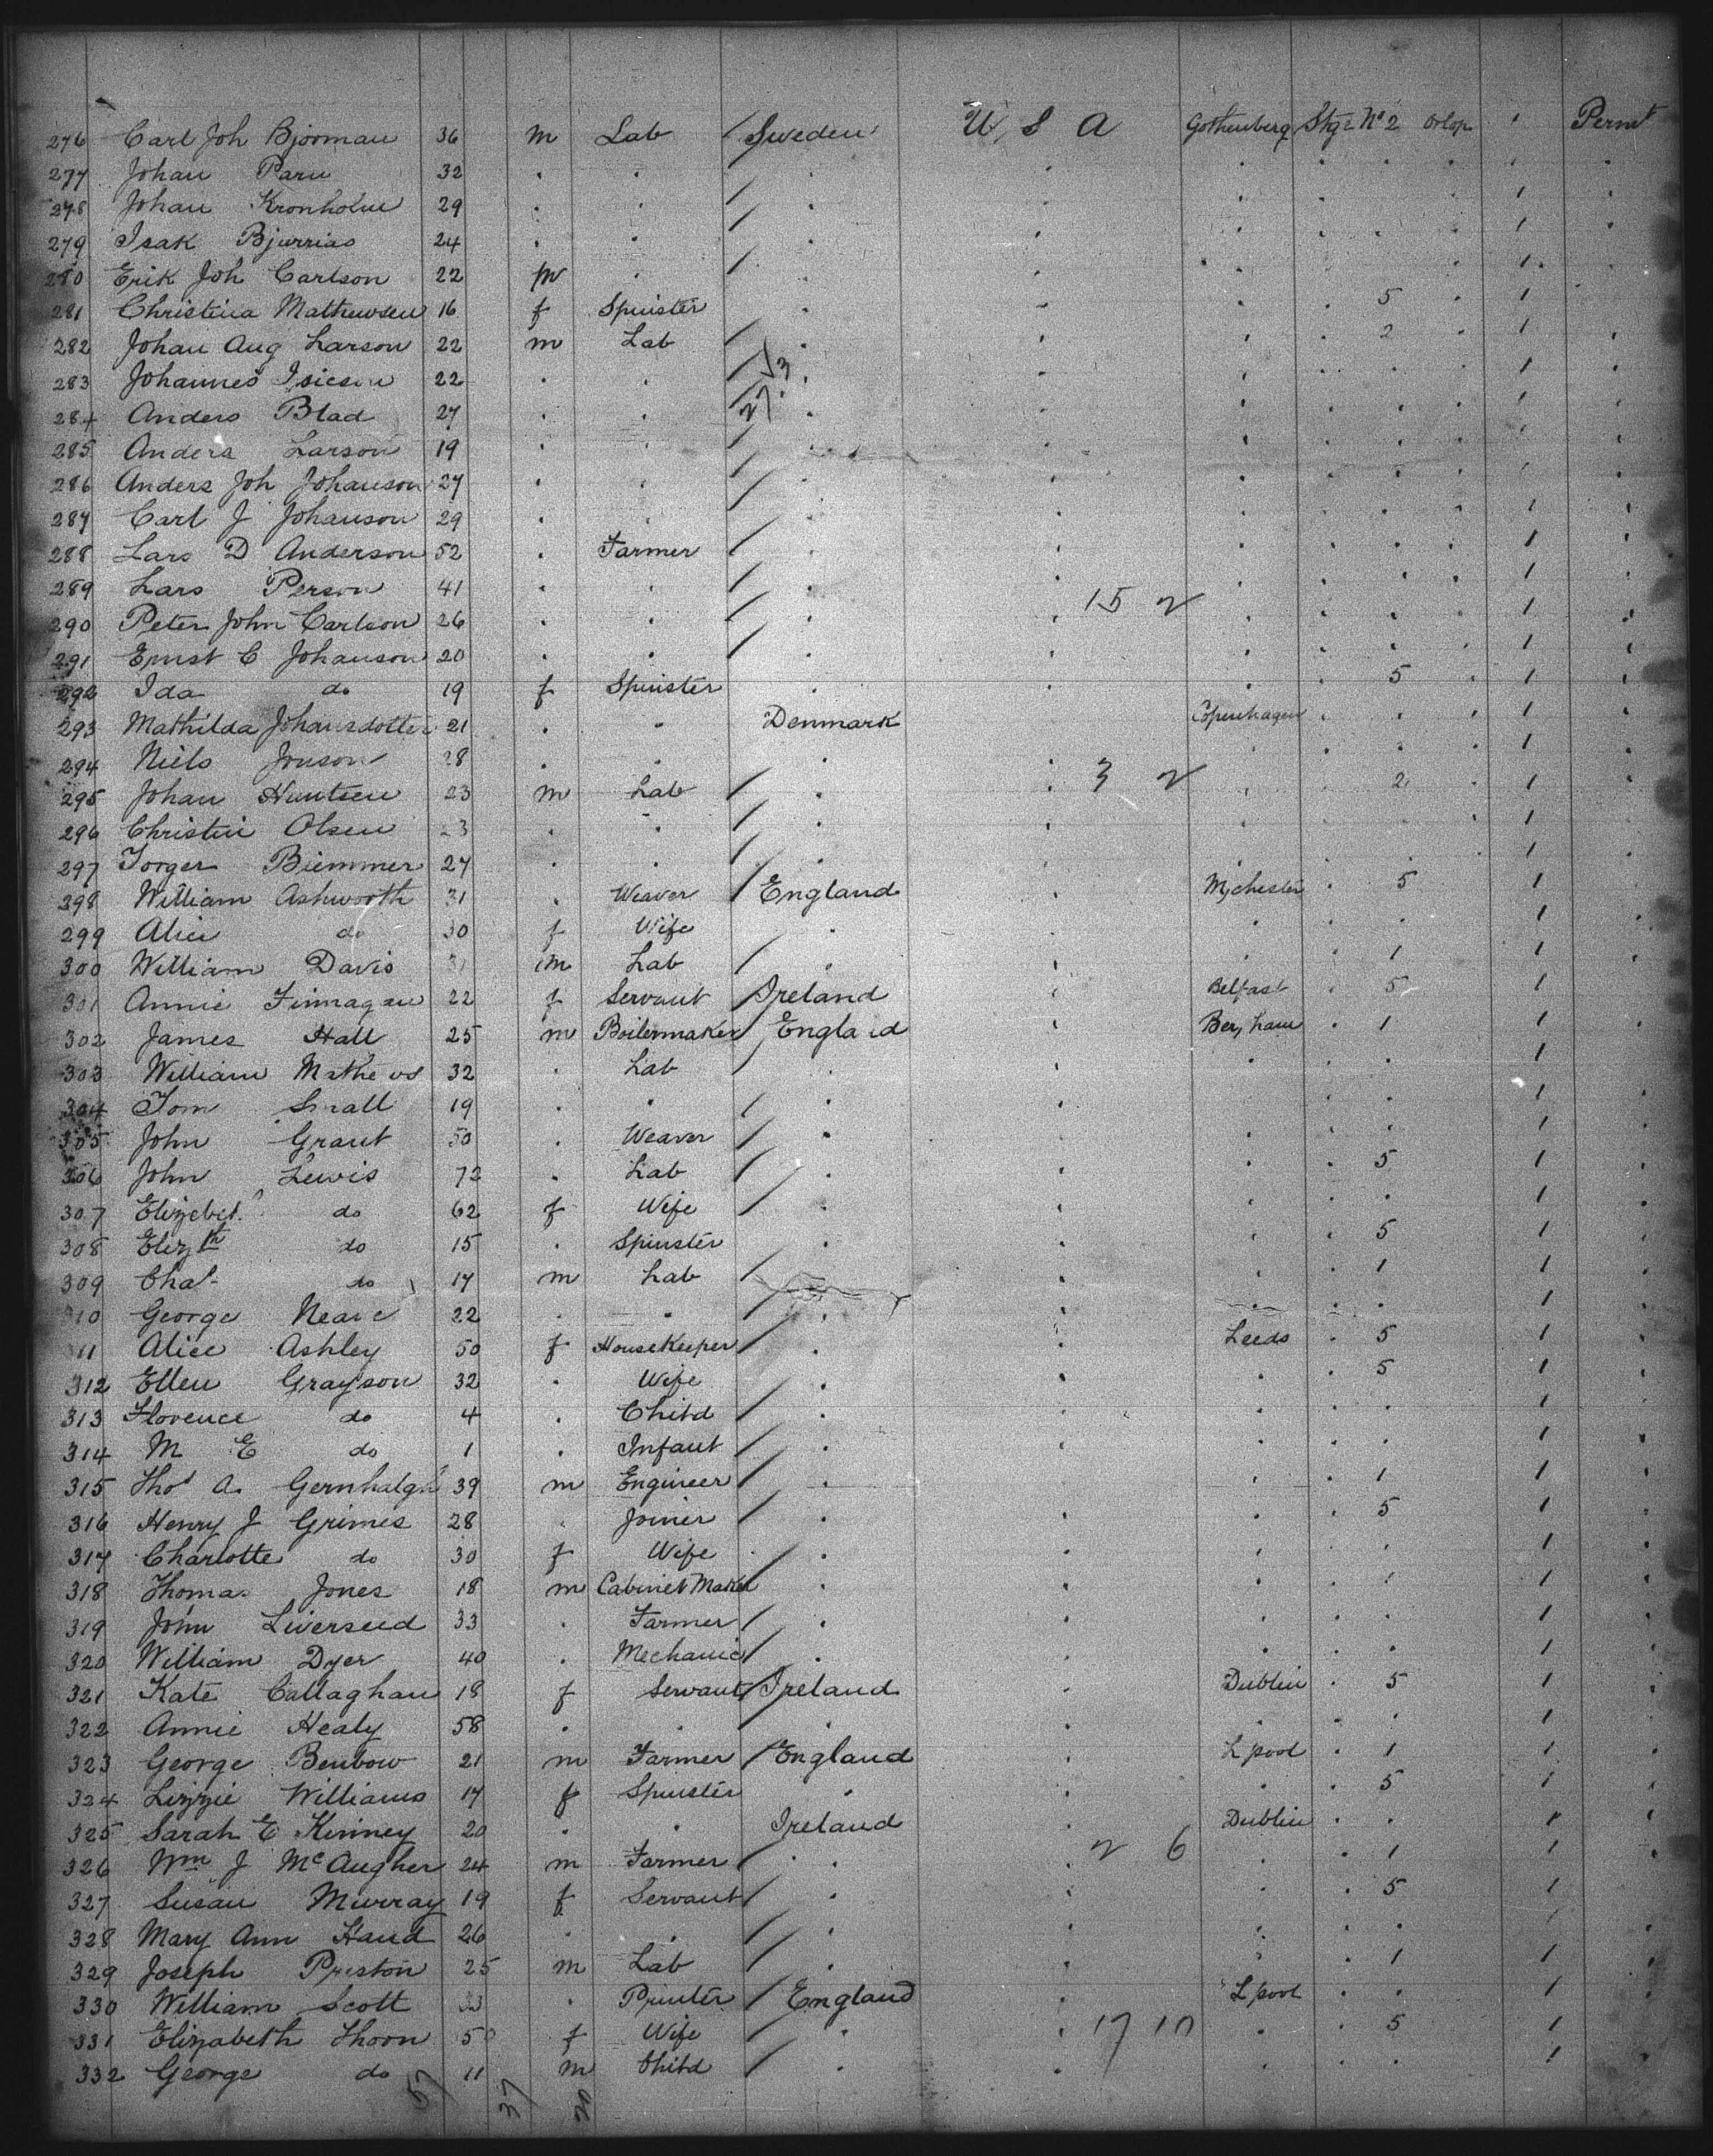 276 Carl Joh Bjorman 36 m Lab Sweden U S A Gothenberg Stge No 2 Orlop 1 Permt
277 Johan Paru 32
278 Johan Kronholm 29 1
279 Isak Bjurrias 24 1
280 Erik Joh Carlson 22 m 1
281 Christina Mathewsen 16 f Spinster 5 1
282 Johan Aug Larson 22 m Lab 2 1
283 Johannes 22 1
284 Anders Blad 27
285 Anders Larson 19
286 Anders Joh Johanson 27
287 Carl J Johanson 29 1
288 Lars D Anderson 52 Farmer 1
289 Lars Person 41 15 2 1
290 Peter John Carlson 26 1
291 Ernst C Johanson 20 1
292 Ida do 19 f Spinster 5 1
293 Mathilda Johansdotter 21 Denmark Copenhagen 1
294 Niels Jonson 28 3 2 1
295 Johan Huntsen 23 m Lab 2 1
296 Christin Olsen 23 1
297 Torger Biemmer 27 1
298 William Ashworth 31 Weaver England M/chester 5 1
299 Alice do 30 f Wife 1
300 William Davis 31 m Lab 1 1
301 Annie Finnagan 22 f Servant Ireland Belfast 5 1
302 James Hall 25 m Boilermaker England Ber,ham 1 1
303 William Mathews 32 Lab 1
304 Tom Small 19 1
305 John Grant 50 Weaver 1
306 John Lewis 72 Lab 5 1
307 Elizebet do 62 f Wife 1
308 Elizth do 15 Spinster 5 1
309 Chas do 17 m Lab 1 1
310 George 22 1
311 Alice Ashley 50 f HouseKeeper Leeds 5 1
312 Ellen Grayson 32 Wife 5 1
313 Florence do 4 Child 1
314 M E do 1 Infant 1
315 Thos A. Gernhalgh 39 m Engineer 1 1
316 Henry J Grimes 28 Joiner 5 1
317 Charlotte do 30 f Wife 1
318 Thomas Jones 18 m Cabinet Maker 1 1
319 John Liverseed 33 Farmer 1
320 William Dyer 40 Mechanic 1
321 Kate Callaghan 18 f Servant Ireland Dublin 5 1
322 Annie Healy 58 1
323 George Benbow 21 m Farmer England L/pool 1 1
324 Lizzie Williams 17 f Spinster 5 1
325 Sarah E Kinney 20 Ireland Dublin 1
326 Wm J McAugher 24 m Farmer 2 6 1 1
327 Susan Murray 19 f Servant 5 1
328 Mary Ann Hand 26 1
329 Joseph Preston 25 m Lab 1 1
330 William Scott 33 Printer England L/pool 1
331 Elizabeth Thorn 50 f Wife 17 10 5 1
332 George do 11 m Child 1
57 37 20